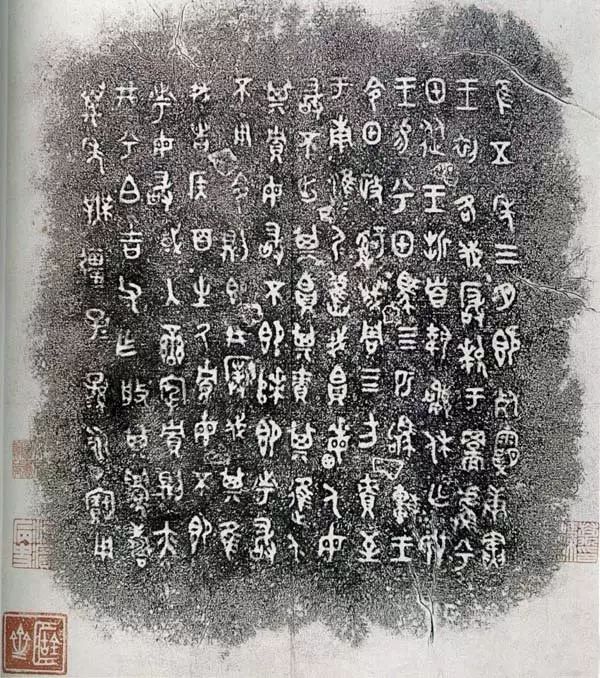 隹五年三月既死霸庚寅
王初各伐厰𤞤于䣙𧆨兮
甲從王折首執訊休亡敃
王易兮甲馬四匹駒車王
令甲政𤔲成周四方責至
于南淮尸淮尸舊我帛畮人毋
敢不出其帛其責其進人
其貯毋敢不即次即市敢
不用令則即井撲伐其隹
我者侯百生氒貯毋不即
市毋敢或入䜌宄貯則亦
井兮白吉父乍般其眉壽
萬年無疆子子孫孫永寶用